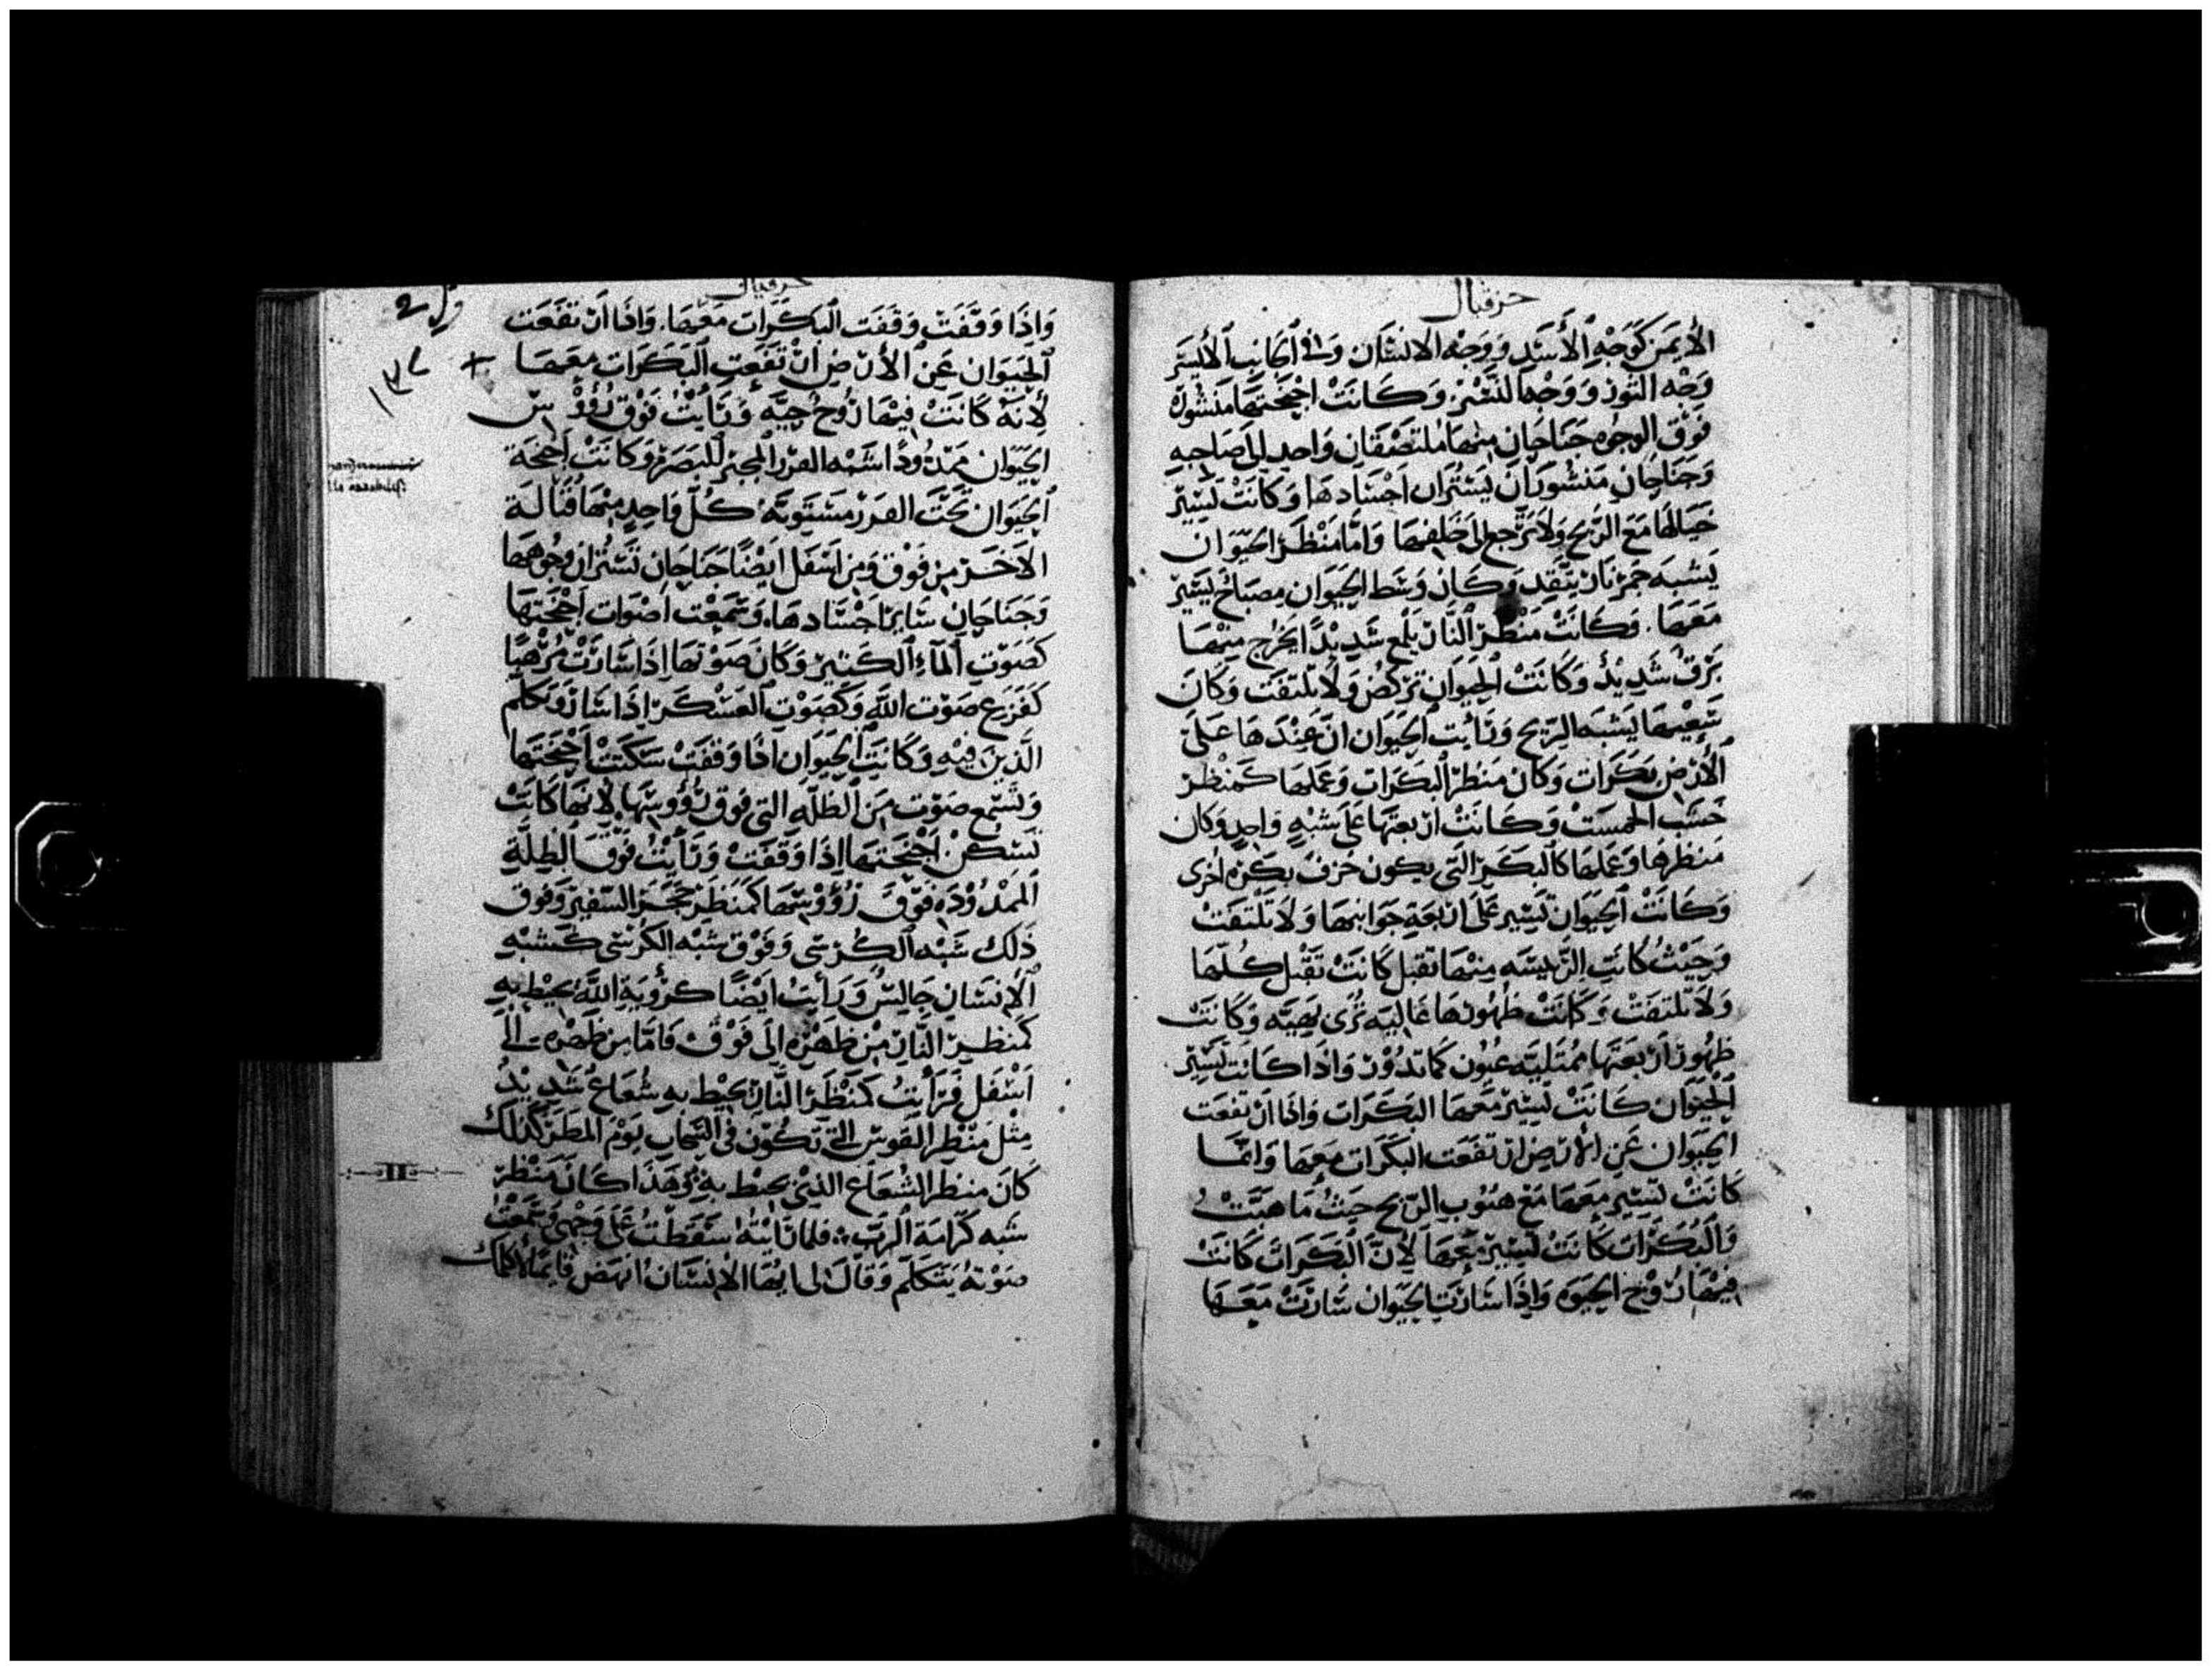 حزقيال
الأيمَن كَوَجْهِ الأسَدِ وَوَجْه الانسَان وَفى الجَانِب الأيسَر
وَجْه الثور وَوَجْهَا للنَسْر. وَكَانَتْ اجْنِحَتهَا مَنشُورَه
فَوْق الوجوه جَنَاحَان مِنهَا مُلتصَقَان وَاحد الى صَاحِبهِ
وَجَنَاحَانِ مَنشُورَان يَسْتُرَان اَجْسَادهَا وَكانَتْ تَسِيْر
حَيَالهَا مَعَ الرّيح وَلا تَرجع الى خَلفهَا وَامَّا مَنْظَر الحَيَوَان
يَشبه جَمر نَار يتَّقد وَكَان وَسَط الحَيَوان مِصبَاح يَسِيْر
مَعَهَا. وَكَانَتْ مَنْظَر النَّار يَلمع شَدِيْدًا يَخرج مِنهَا
بَرْقٌ شَدِيْدٌ وَكَانَتْ الحَيَوَان تَرْكُضُ وَلا تلتفت وَكَانَ
سَعْيهَا يَشْبَه الرّيح وَرَأيت الحَيَوان انَّ عنْدَهَا عَلَى
الأرْض بَكَرَات وَكَان مَنظر البَكَرَات وَعَملهَا كَمنْظر
خَشَب الخمست وَكَانَتْ اربعتهَا عَلَى شبْهٍ وَاحدٍ وَكان
مَنظرهَا وَعَملهَا كالبَكَرَ التى يكون حَرف بَكره اخرى
وَكَانَتْ الحَيَوَان تَسِير عَلى اربَعَةِ جَوَانبهَا وَلا تلتفت
وَحَيْثُ كَانَتِ الرَّييسَه مِنهَا تقبل كَانَتْ تَقْبل كلهَا
وَلا تلتفت وَكَانَتْ ظهُورهَا عَاليَه تُرَى بَهِيَّه وَكَانَتْ
ظهُور اربعَتهَا ممتَليَه عيُون كمَا تدُوْر وَاذَا كانت تَسِيْر
الحَيَوَان كَانَتْ تَسِيْر مَعهَا البَكَرَات وَاذَا ارتفعَت
الحَيَوَان عَن الارْض ارتفَعَت البكَرَات مَعهَا وَانمَا
كَانَتْ تَسِير مَعَهَا مَعْ هبُوب الرّيح حَيثُ مَا هَبَّتْ
وَالبَكَرَات كَانَتْ تَسِيْر مَعهَا لِأنَّ البَكَرَات كَانَتْ
فِيْهَا رُوْح الحَيَوه وَاذَا سَارَت الحَيَوان سَارَتْ مَعَهَا
حزقيال
وَاِذَا وَقَفَتْ وَقَفَت البَكَرَات مَعَهَا. وَاذَا ارتفَعَت
الحَيَوَان عَن الأرْض ارْتَفَعَت البَكَرَات مَعَهَا
لأنّهُ كَانَتْ فيْهَا رُوحُ حَيَّه وَرَأيْتُ فَوْق رُؤُوسْ
الحَيَوَان مَمدُودًا شبه الفرز المخبر للبصَر وَكَانَتْ اَجْنحَة
الحَيَوَان تَحْتَ الفَرز مسْتَويَةْ كُلّ وَاحِدٍ مِنْهَا قُبَالَة
الاخَر مِن فَوْق وَمِن اسْفَل ايْضًا جَنَاحَان تَسْتُرَان وجُوهَهَا
وَجَنَاحَانِ سَايرَ اجْسَادهَا. وَسَمعْت اصْوَات اَجْنحَتهَا
كَصَوْتِ المَآء الكَثير وَكَان صَوْتهَا اذَا سَارَتْ مُرْهبًا
كَفَزعِ صَوْت اللَّه وَكَصَوْت العَسْكَر اذَا سَارَ وَكلم
الذيْن فِيْهِ وَكَانت الحَيَوَان اذَا وَقفَتْ سَكَنَتْ اَجْنحَتهَا
وَتُسْمع صَوْت مِن الظلَّه التى فوق رُؤُوسهَا لانهَا كَانَتْ
تَسْكن اَجْنحَتهَا اِذَا وَقَفَتْ وَرَأيْتُ فَوْقَ الظلَّةِ
المَمْدُوْدَه فَوْقَ رُؤُوسهَا كَمَنظَر حَجَر السَّفير وَفَوق
ذَلك شَبْه الكُرْسى وَفَوْق شَبْه الكُرسى كَشبْهِ
الاِنسَان جَالِسٌ وَرَأيتُ ايْضًا كرُؤْيَةِ اللَّه يُحيْط بِهِ
كَمنظر النَّار مِنْ ظهْرِه اِلَى فَوْق فَامَّا مِن ظَهْره الَى
اَسْفَل فَرَأيْتُ كَمَنْظَر النَّار يحيْط بِه شُعَاعٌ شَدِيْدٌ
مِثْل مَنْظر القَوس التى تكُوْن فى السَّحَاب يَوْم المَطر كَذَلك
كَانَ منظر الشُعَاع الذيْ يحيْط بهِ وَهَذَا كَانَ مَنْظَر
شبه كَرَامَة الرَبّ فلما رَايتهُ سَقَطْتُ عَلَى وَجْهى وَسَمعْتُ
صَوْتهُ يَتَكلّم وَقَالَ لى ايهَا الانسَان انهَض قَائمًا لاكلمك
١٣٧
II